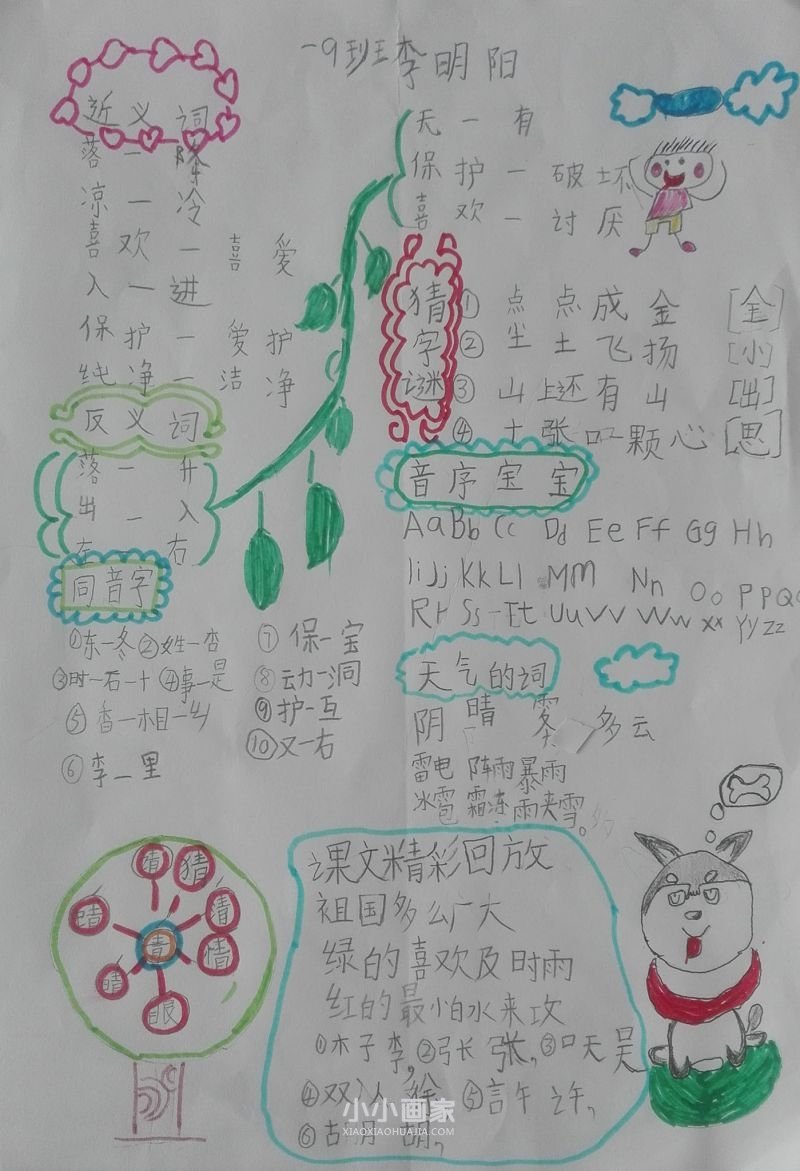 一9班李明阳
近义词
落一降
凉一冷
喜欢一喜爱
入一进
保护一爱护
纯净一洁净
反义词
落一升
出一入
左 右
无一有
保护一破坏
喜欢一讨厌
猜字谜
①点点成金[金]
②尘土飞扬[小]
③山上还有山[出]
④十张口一颗心[思]
同音字
①东一冬②姓一杏
③时一石一十④事一是
⑤香一相一乡
⑥李一里
⑦保一宝
⑧动一洞
⑨护一互
⑩又一右
音序宝宝
Aa Bb Cc Dd Ee Ff Gg Hh
Ii Jj Kk Ll Mm Nn Oo Pp Qq
Rr Ss Tt Uu Vv Ww Xx Yy Zz
天气的词
阴 晴 雾 多云
雷电 阵雨 暴雨
冰雹 霜冻 雨夹雪。多
猜
清
情
眼
睛
晴
青
课文精彩回放
祖国多么广大
绿的喜欢及时雨
红的最怕水来攻
①木子李,②弓长张,③口天吴
④双人徐 ⑤言午许,
⑥古月胡,
小小画家
XIAOXIAOHUAJIA.COM